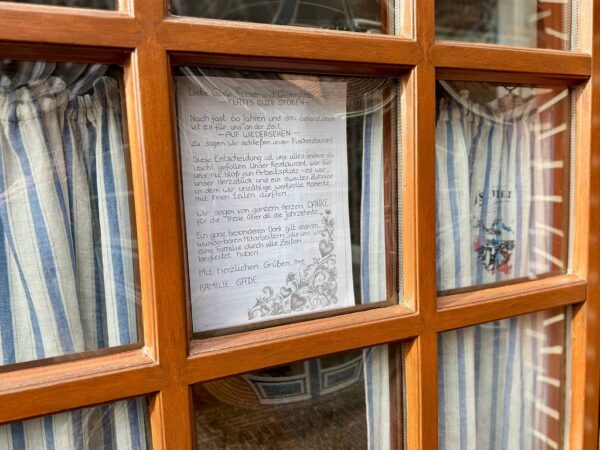 Liebe Gäste, Freunde und
- KLATT'S GUTE STUBEN -
Nach fast 60 Jahren und drei Generationen
ist es für uns an der Zeit
- AUF WIEDERSEHEN -
zu sagen. Wir schließen unser Fischrestaurant.
Diese Entscheidung ist uns alles andere als
leicht gefallen. Unser Restaurant war für
uns nie bloß ein Arbeitsplatz - es war
unser Herzstück und ein zweites Zuhause
in dem wir unzählige wertvolle Momente
mit Ihnen teilen durften.
Wir sagen von ganzem Herzen DANKE
für die Treue über all die Jahrzehnte.
Ein ganz besonderer Dank gilt unseren
wunderbaren Mitarbeitern, die uns wie
eine Familie durch alle Zeiten
begleitet haben.
Mit herzlichen Grüßen Ihre
FAMILIE GADE